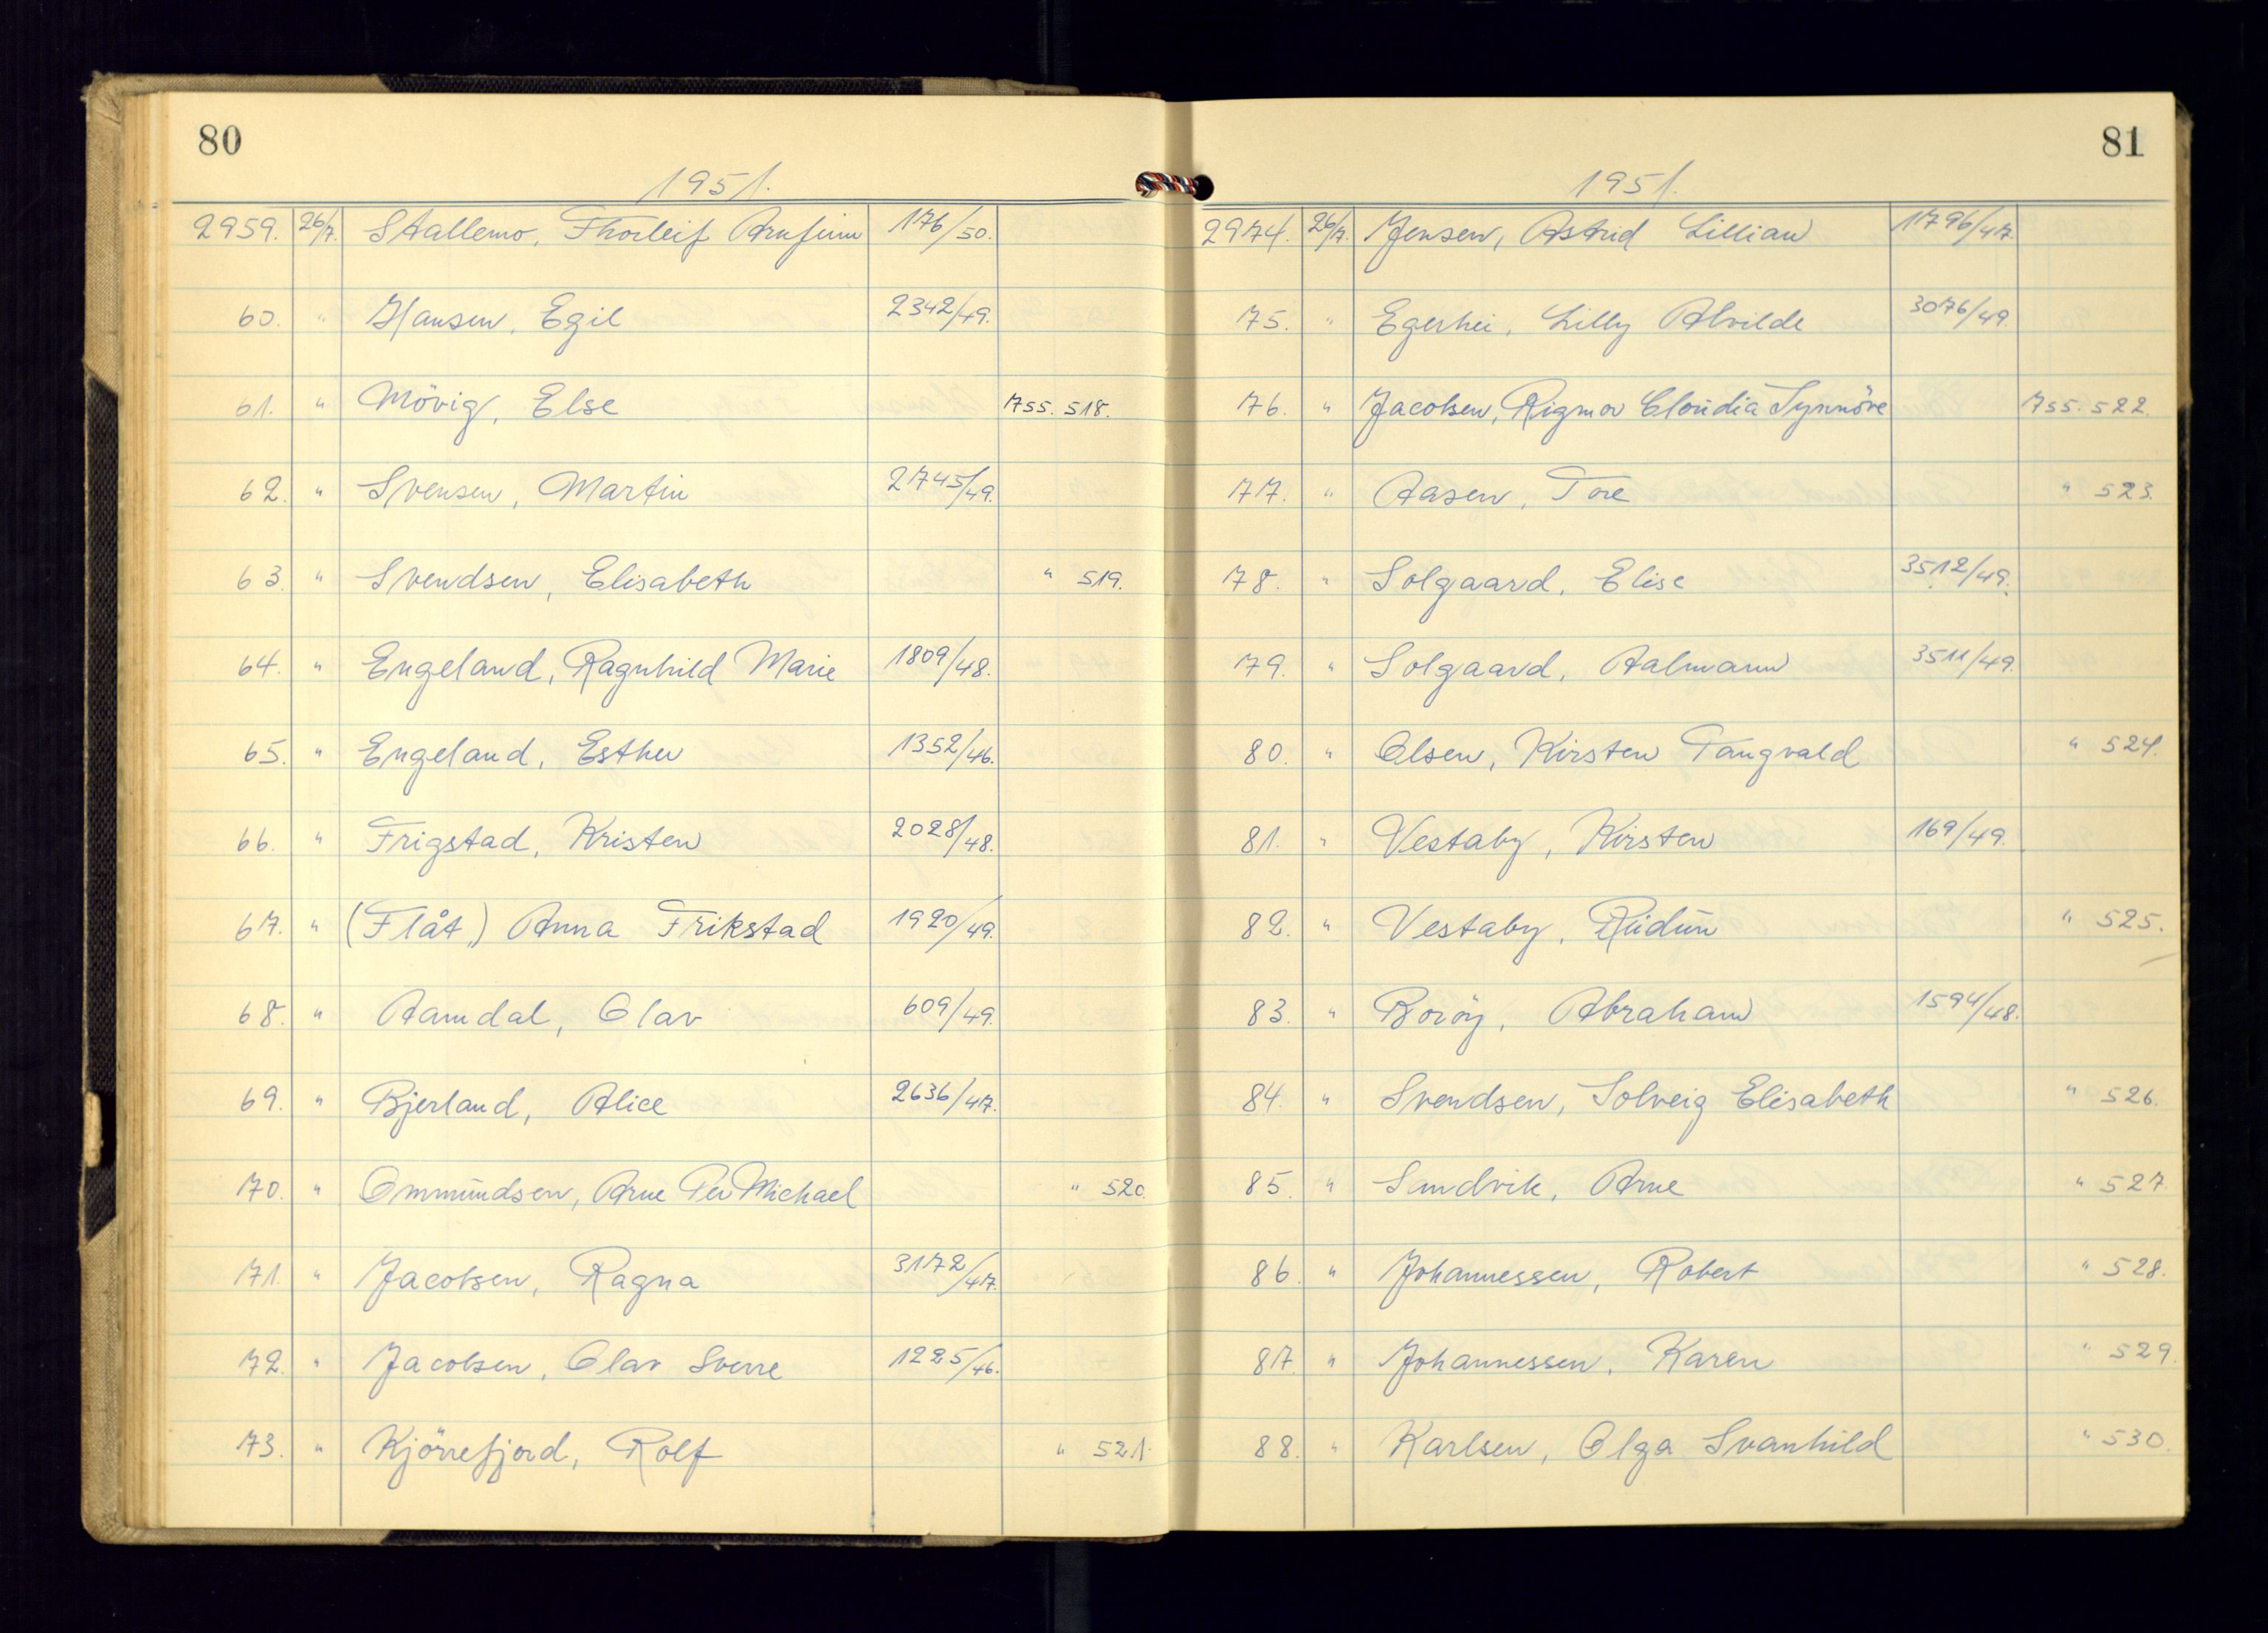 80
1951.
2959. 26/7. Stallemo, Thorleif Arnfinn 176/50.
60. " Hansen, Egil 2342/49.
61. " Mövig, Else 755.518.
62. " Svensen, Martin 2745/49.
63. " Svendsen, Elisabeth " 519.
64. " Engeland, Ragnhild Marie 1809/48.
65. " Engeland, Esther 1352/46.
66. " Frigstad, Kristen 2028/48.
67. " (Flåt) Anna Frikstad 1920/49.
68. " Aamdal, Olav 609/49.
69. " Bjerland, Alice 2636/47.
70. " Ommundsen, Arne Per Michael " 520.
71. " Jacobsen, Ragna 3172/47.
72. " Jacobsen, Olav Sverre 1225/46.
73. " Kjörrefjord, Rolf " 521.
81
1951.
2974. 26/7. Jensen, Astrid Lillian 1796/47.
75. " Egerhei, Lilly Alvilde 3076/49.
76. " Jacobsen, Rigmor Claudia Synnöve 755.522.
77. " Aasen, Tore " 523.
78. " Solgaard, Elise 3512/49.
79. " Solgaard, Aalmann 3511/49.
80. " Olsen, Kirsten Tangvald " 524.
81. " Vestaby, Kirsten 169/49.
82. " Vestaby, Reidun " 525.
83. " Boröy, Abraham 1594/48.
84. " Svendsen, Solveig Elisabeth " 526.
85. " Sandvik, Arne " 527.
86. " Johannessen, Robert " 528.
87. " Johannessen, Karen " 529.
88. " Karlsen, Olga Svanhild " 530.